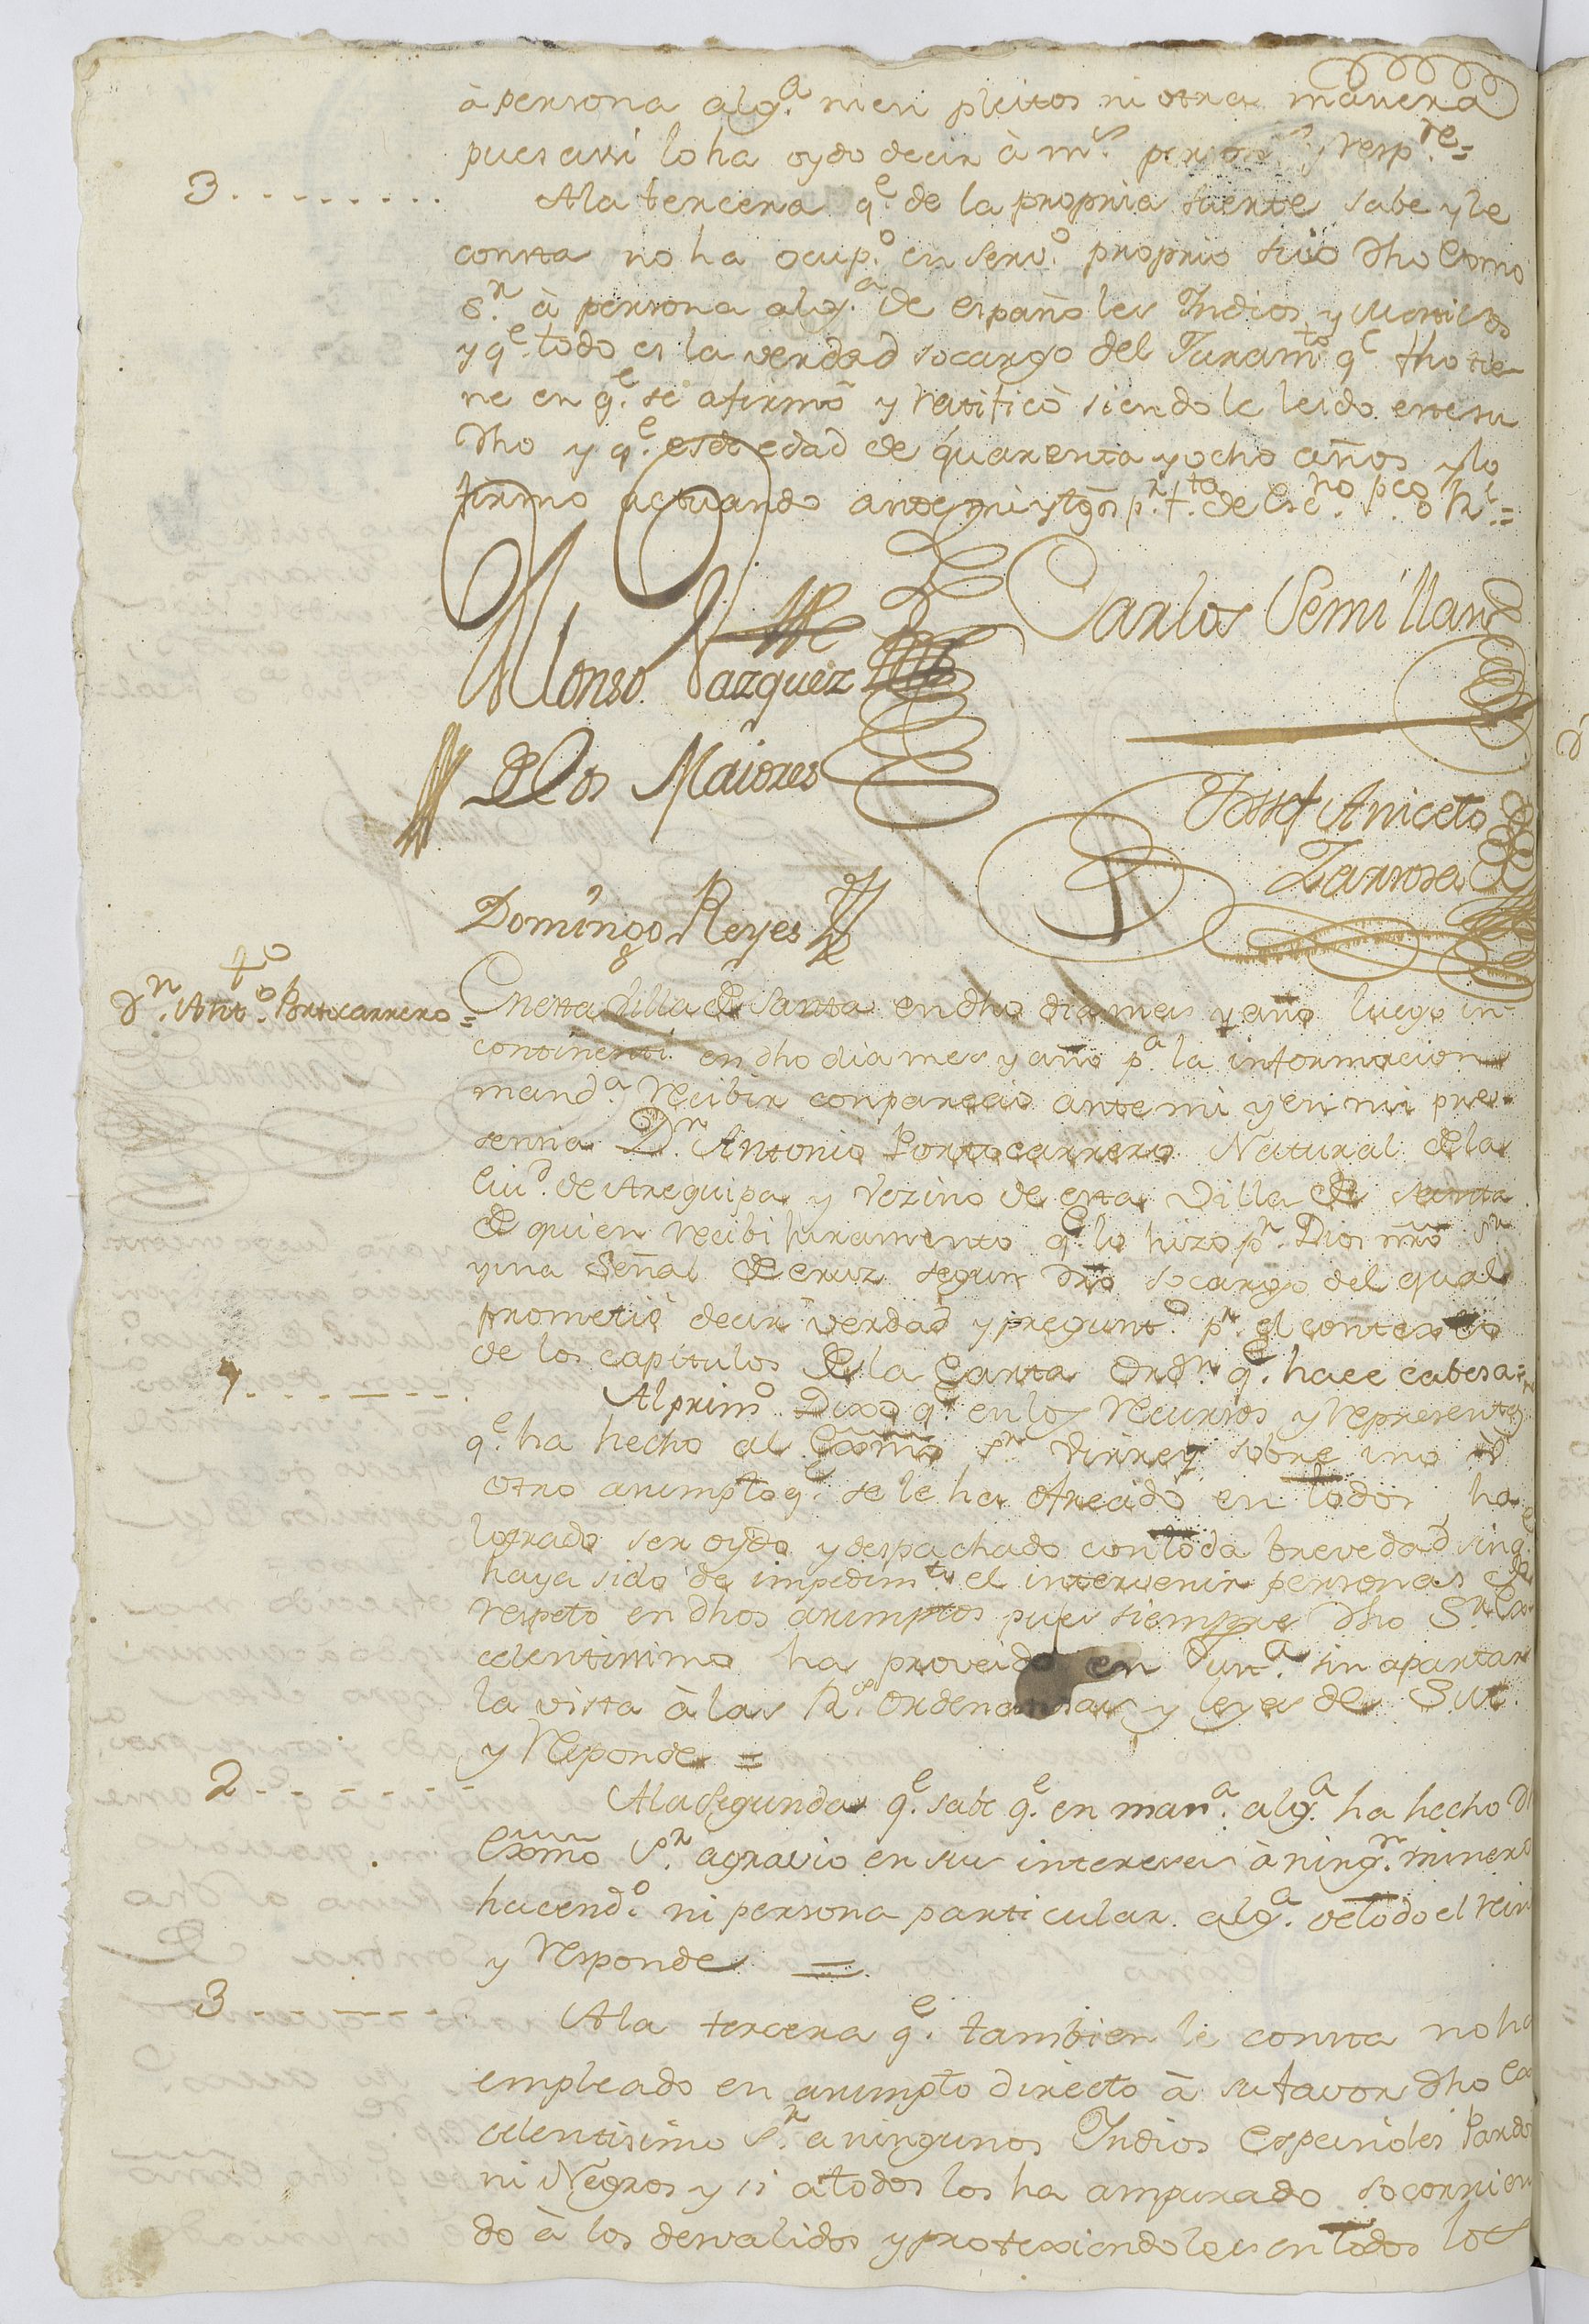 à persona alg.ª ni en pleitos ni otra manera
pues assi lo ha oydo decir à m.s personas y resp.de =
3 - - - - - - - - -
Ala tercera q.e de la propria suerte sabe y le
consta no ha ocup.o en serv.o proprio suio dho Exmo
S.r à persona alg.a de españoles Indios y Mestizos
y q.e todo es la verdad socargo del Juram.to q.e fho tie-
ne en q.e se afirmò y ratificò siendole leido este su
dho y q.e es de edad de quarenta y ocho años y lo
firmo actuando ante mi y tgos p.r f.ta de Esc.no p.co o R.l =
Alonso Vazquez
De los Maiores
Carlos Semillan
Jossef Aniceto
Larrosa
Domingo Reyes
t.o
D.n Ant.o Portocarrero =
En esta Villa de Santa en dho dia mes y año luego in
continenti en dho dia mes y año p.a la informacion
mand.a recibir conparecio ante mi y en mi pre-
sensia D.n Antonio Portocarrero Natural de la
Ciu.d de Arequipa y Vezino de esta Villa de Santa
de quien recibi juramento q.e lo hizo p.r Dios nrõ S.r
y una Señal de cruz segun drõ socargo del qual
prometiò decir verdad y pregunt.o p.r el contexto
de los capitulos de la Carta Ordn q.e hace cabesa =
1 - - - - - - -
Al prim.o Dixo q.e en los recursos y represent.s
q.e ha hecho al Exmo S.r Virrey sobre uno ù
otro asumpto q.e se le ha ofrecido en todos ha
logrado ser oydo y despachado con toda brevedad sin q.e
haya sido de impedim.to el intervenir personas de
respeto en dhos asumptos pues siempre dho S.r Ex-
celentissimo ha proveido en Just.a sin apartar
la vista à las R.s Ordenansas y leyes de S. M.
y responde =
2 - - - - - - -
Ala segunda q.e sabe q.e en man.a alg.a ha hecho d
Exmo S.r agravio en sus intereses à ning.n minero
hacend.o ni persona particular alg.a de todo el rein
y responde =
3 - - - - - - -
Ala tercera q.e tambien le consta no ha
empleado en asumpto directo à su favor dho Ex
celentisimo S.r a ningunos Indios Españoles Pardos
ni Negros y si à todos los ha amparado socorrien
do à los desvalidos y protexiendoles en todos los